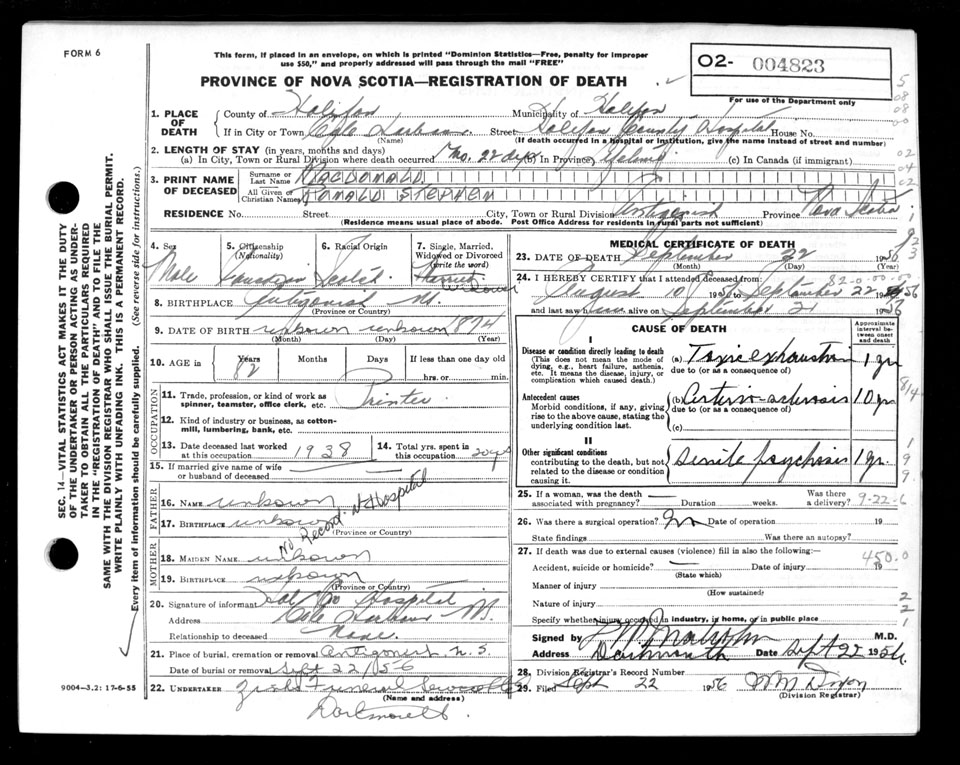 FORM 6
This form, if placed in an envelope, on which is printed "Dominion Statistics—Free, penalty for improper
use $50," and properly addressed will pass through the mail "FREE"
PROVINCE OF NOVA SCOTIA—REGISTRATION OF DEATH
02- 004823
For use of the Department only
1. PLACE OF DEATH
County of Halifax Municipality of Halifax
If in City or Town Cole Harbour Street Halifax County Hospital House No.
(Name) (If death occurred in a hospital or institution, give the name instead of street and number)
2. LENGTH OF STAY (in years, months and days)
(a) In City, Town or Rural Division where death occurred 1 mo. 22 dys (b) In Province Lifetime (c) In Canada (if immigrant)
3. PRINT NAME OF DECEASED
Surname or Last Name MACDONALD
All Given or Christian Names RONALD STEPHEN
RESIDENCE No. Street City, Town or Rural Division Antigonish Province Nova Scotia
(Residence means usual place of abode. Post Office Address for Rural parts not sufficient)
4. Sex 5. Citizenship (Nationality) 6. Racial Origin 7. Single, Married, Widowed or Divorced (write the word)
Male Canadian Scotch Married
Widower
8. BIRTHPLACE Antigonish NS.
(Province or Country)
9. DATE OF BIRTH unknown unknown 1874
(Month) (Day) (Year)
10. AGE in Years Months Days If less than one day old
82 hrs. or min.
OCCUPATION
11. Trade, profession, or kind of work as spinner, teamster, office clerk, etc. Printer
12. Kind of industry or business, as cotton-mill, lumbering, bank, etc.
13. Date deceased last worked at this occupation 1938 14. Total yrs. spent in this occupation 20 yrs
15. If married give name of wife or husband of deceased
FATHER
16. NAME unknown
17. BIRTHPLACE unknown
(Province or Country)
No Record - N.S Hospital
MOTHER
18. MAIDEN NAME unknown
19. BIRTHPLACE unknown
(Province or Country)
20. Signature of informant Hal Co Hospital
Address Cole Harbour NS.
Relationship to deceased None.
21. Place of burial, cremation or removal Antigonish N.S.
Date of burial or removal Sept 22/56
22. UNDERTAKER Funeral
(Name and address)
Dartmouth
9004—3.2: 17-6-55
SEC. 14—VITAL STATISTICS ACT MAKES IT THE DUTY
OF THE UNDERTAKER OR PERSON ACTING AS UNDER-
TAKER TO OBTAIN ALL THE PARTICULARS REQUIRED
IN THE "REGISTRATION OF DEATH" AND TO FILE THE
SAME WITH THE DIVISION REGISTRAR WHO SHALL ISSUE THE BURIAL PERMIT.
WRITE PLAINLY WITH UNFADING INK. THIS IS A PERMANENT RECORD.
Every item of information should be carefully supplied. (See reverse side for instructions.)
MEDICAL CERTIFICATE OF DEATH
23. DATE OF DEATH September 22 1956
(Month) (Day) (Year)
24. I HEREBY CERTIFY that I attended deceased from:
82-0-00-00
August 10 1956 to September 22 1956
and last saw him alive on September 21 1956
CAUSE OF DEATH
Approximate interval between onset and death
I
Disease or condition directly leading to death (a) Toxic exhaustion 1 yr
(This does not mean the mode of dying, e.g., heart failure, asthenia, etc. It means the disease, injury, or complication which caused death.)
due to (or as a consequence of)
Antecedent causes (b) Arterio-sclerosis 10 yrs
Morbid conditions, if any, giving rise to the above cause, stating the underlying condition last.
due to (or as a consequence of)
(c)
II
Other significant conditions Senile psychosis 1 yr.
contributing to the death, but not related to the disease or condition causing it.
25. If a woman, was the death associated with pregnancy? Duration weeks. Was there a delivery? 9-22-6
26. Was there a surgical operation? No Date of operation 19
State findings Was there an autopsy?
27. If death was due to external causes (violence) fill in also the following:—
450.0
Accident, suicide or homicide? Date of injury 19
(State which)
Manner of injury
(How sustained)
Nature of injury
Specify whether injury occurred in industry, in home, or in public place
Signed by M.D.
Address Dartmouth Date Sept 22 1956
28. Division Registrar's Record Number
29. Filed Sept 22 1956 WM Dixon
(Division Registrar)